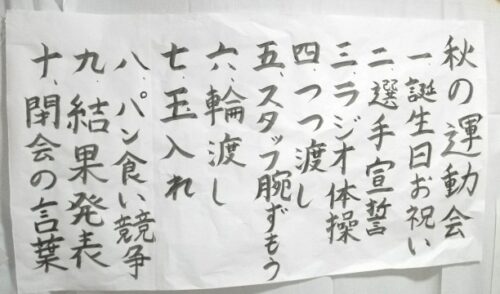 秋の運動会
一、誕生日お祝い
二、選手宣誓
三、ラジオ体操
四、つつ渡し
五、スタッフ腕ずもう
六、輪渡し
七、玉入れ
八、パン食い競争
九、結果発表
十、閉会の言葉